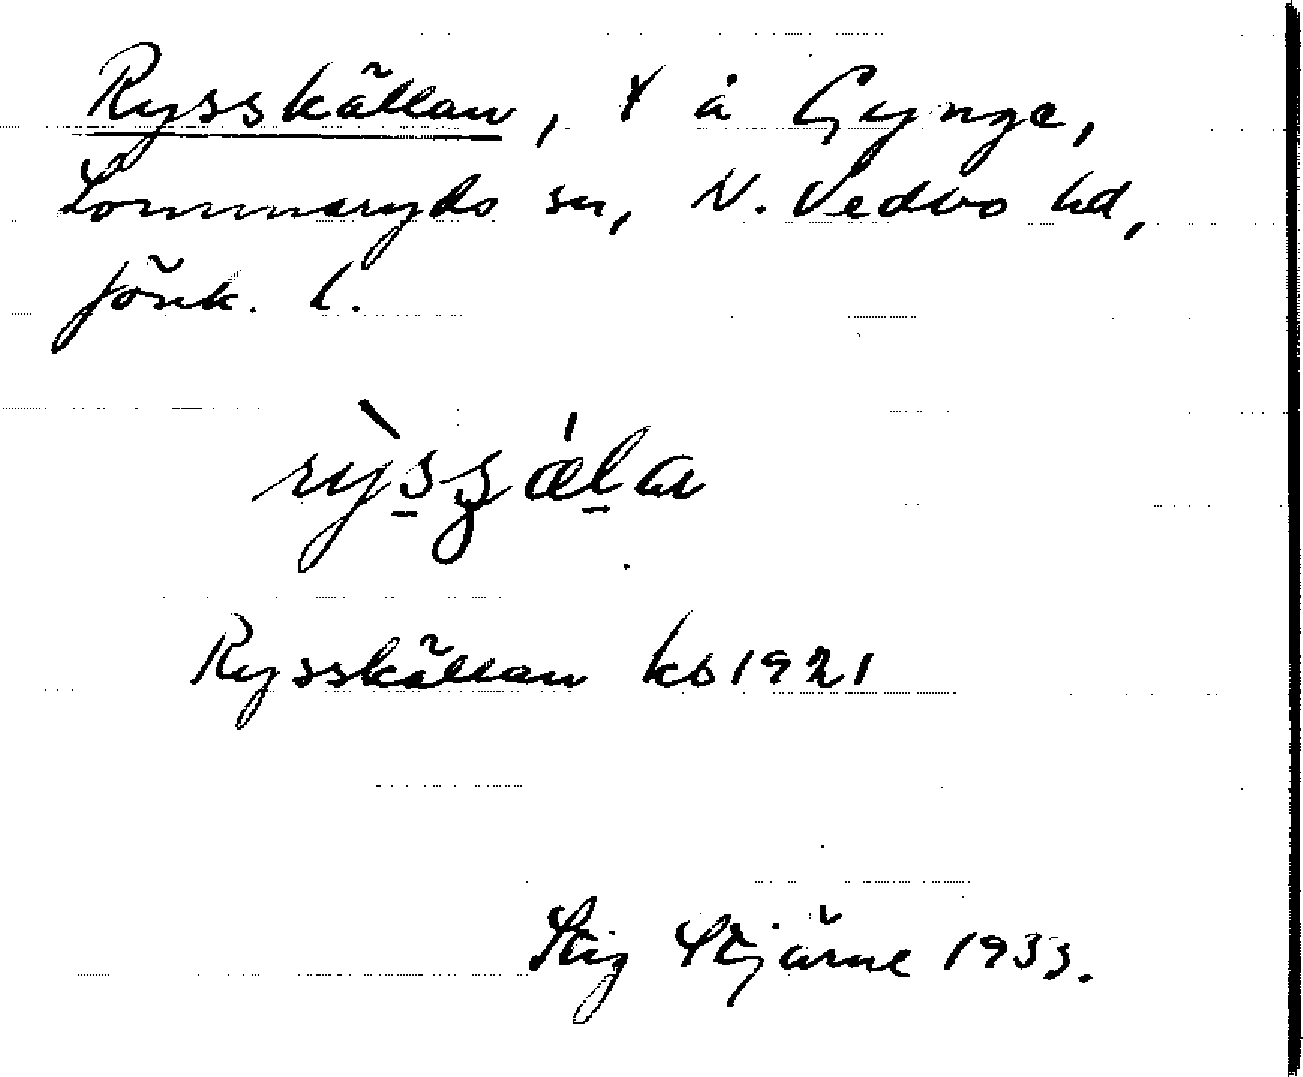 Rysskällan, t å Gynge,
Lommaryds sn, N. Vedbo hd,
Jönk. l.
Rysskällan kb 1921
Stig Stjärne 1933.